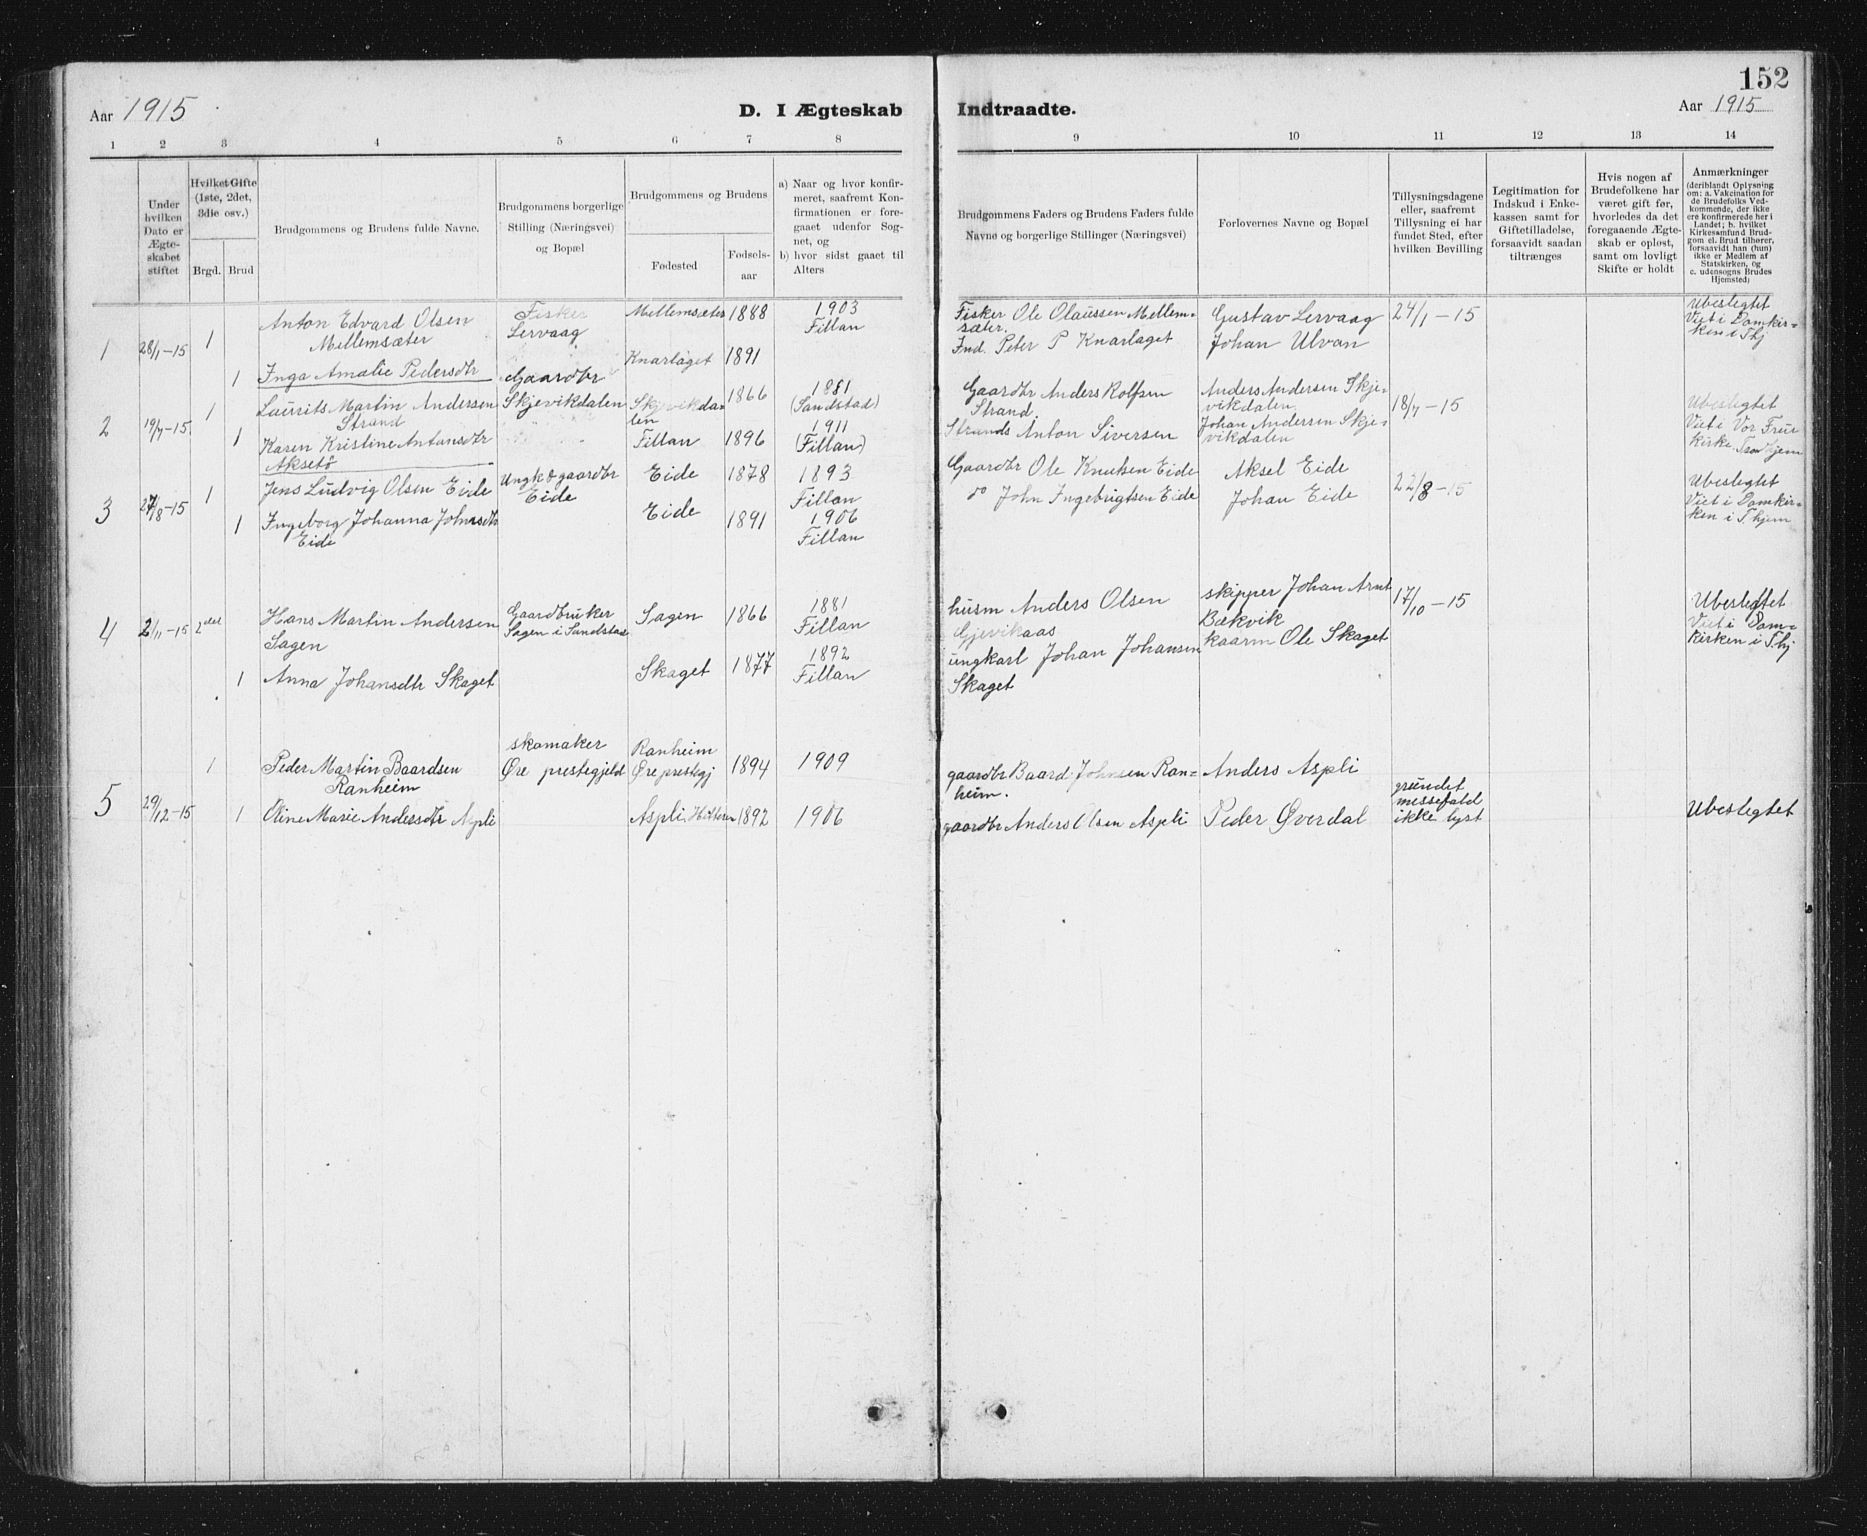 152
Aar 1915
D. I Ægteskab
Indtraadte.
Aar 1915
1 2 3 4 5 6 7 8
9 10 11 12 13 14
Under hvilken Dato er Ægteskabet stiftet
Hvilket Gifte (1ste, 2det, 3die osv.)
Brgd. Brud
Brudgommens og Brudens fulde Navne.
Brudgommens borgerlige Stilling (Næringsvei) og Bopæl
Brudgommens og Brudens
Fødested
Fødsels-aar
a) Naar og hvor konfir-
meret, saafremt Kon-
firmationen er fore-
gaaet udenfor Sog-
net, og
b) hvor sidst gaaet til
Alters
Brudgommens Faders og Brudens Faders fulde
Navne og borgerlige Stillinger (Næringsvei)
Forlovernes Navne og Bopæl
Tillysningsdagene
eller, saafremt
Tillysning ei har
fundet Sted, efter
hvilken Bevilling
Legitimation for
Indskud i Enke-
kassen samt for
Giftetilladelse,
forsaavidt saadan
tiltrænges
Hvis nogen af
Brudefolkene har
været gift før,
hvorledes da det
foregaaende Ægte-
skab er opløst,
samt om lovligt
Skifte er holdt
Anmærkninger
(deriblandt Oplysning
om: a. Vakcination for
de Brudefolks Ved-
kommende, der ikke
ere konfirmerede her i
Landet; b. hvilket
Kirkesamfund Brud-
gom el. Brud tilhører,
forsaavidt han (hun)
ikke er Medlem af
Statskirken, og
c. udensogns Brudes
Hjemsted)
1
28/1-15
1
Anton Edvard Olsen
Mellemsæter
Fisker
Lervaag
Mellemsæter
1888
1903
Fillan
Fisker Ole Olaussen Mellem-
sæter.
Gustav Lervaag
24/1-15
Ubeslegtet
Viet i Domkir-
ken i Thj
1
Inga Amalie Pedersdtr
Knarlaget
1891
Ind. Peter P Knarlaget
Johan Ulvan
2
19/7-15
1
Laurits Martin Andersen
Strand
Gaardbr
Skjevikdalen
Skjevikda-
len
1866
1881
(Sandstad)
Gaardbr Anders Rolfsen
Strand.
Anders Andersen Skje-
vikdalen
18/7-15
Ubeslegtet
Viet i Vor Frue
Kirke. Trondhjem
1
Karen Kristine Antonsdtr
Aksetø
Fillan
1896
1911
(Fillan)
Strands Anton Siversen
Johan Andersen Skje-
vikdalen
3
27/8-15
1
Jens Ludvig Olsen Eide
Ungk & gaardbr
Eide
Eide
1878
1893
Fillan
Gaardbr Ole Knutsen Eide
Aksel Eide
22/8-15
Ubeslegtet
Viet i Domkir-
ken i Thjem
1
Ingeborg Johanna Johnsdtr
Eide
Eide
1891
1906
Fillan
do John Ingebrigtsen Eide
Johan Eide
4
2/11-15
2det
Hans Martin Andersen
Sagen
Gaardbruker
Sagen i Sandstad
Sagen
1866
1881
Fillan
husm Anders Olsen
Gjevikaas
skipper Johan Arnt
Bækvik
17/10-15
Ubeslegtet
Viet i Dom-
kirken i Thj
1
Anna Johansdtr Skaget
Skaget
1877
1892
Fillan
ungkarl Johan Johansen
Skaget
kaarm Ole Skaget
5
29/12-15
1
Peder Martin Baardsen
Ranheim
skomaker
Øre prestegjeld
Ranheim
Øre prestegj
1894
1909
gaardbr Baard Johnsen Ran-
heim.
Anders Aspli
grundet
messefald
ikke lyst
Ubeslegtet
1
Oline Marie Andersdtr Aspli
Aspli Hitteren
1892
1906
gaardbr Anders Olsen Aspli
Peder Øverdal